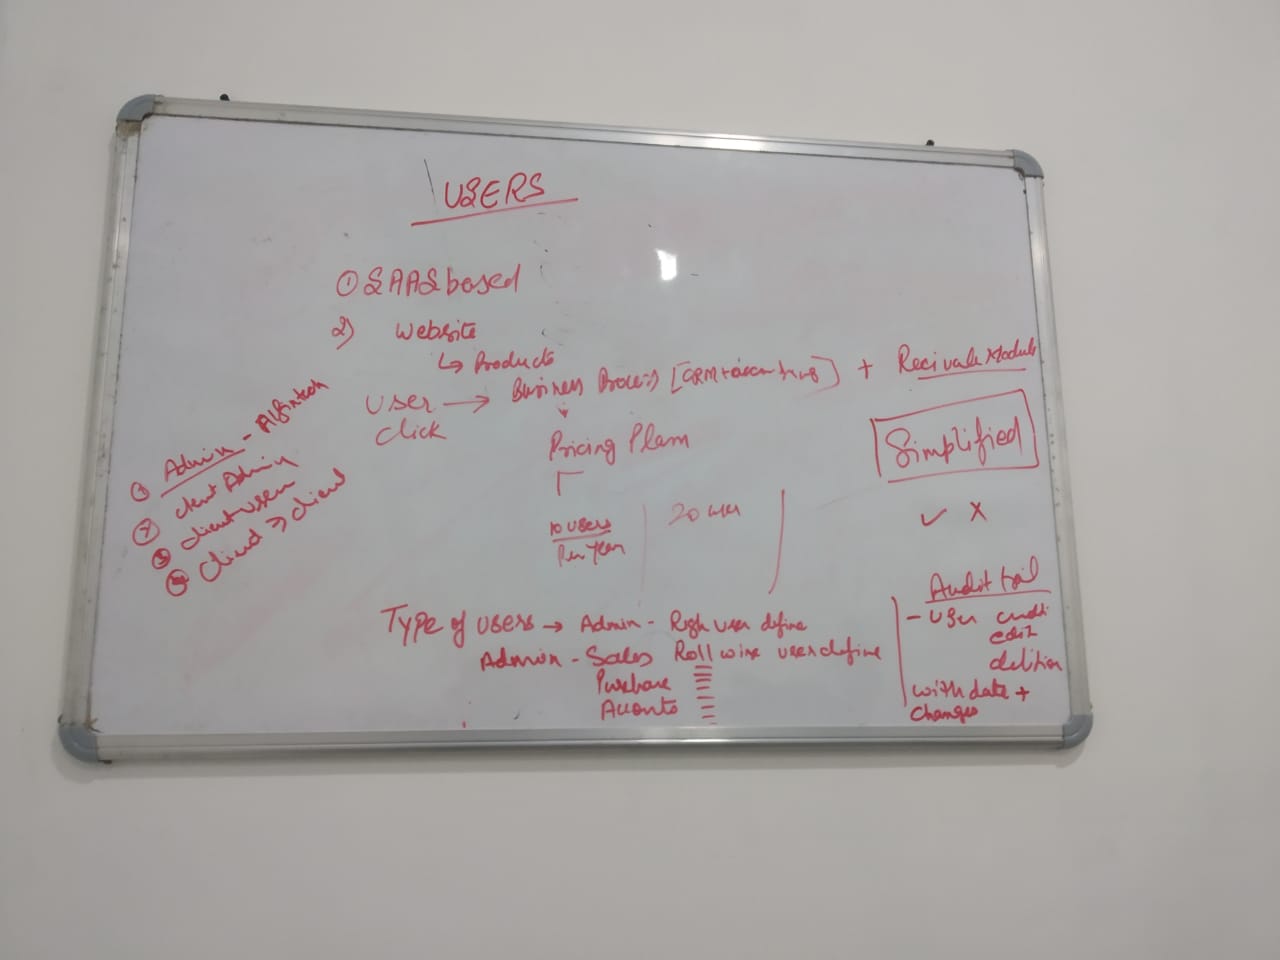 USERS
① SAAS based
2) Website
↳ Products
User click → Business Process [CRM + Accounting] + Recivale Module
Pricing Plan
Simplified
✓ X
10 users Per Year
20 user
① Admin - Alfintech
② Client Admin
③ Client user
④ Client → client
Type of users → Admin - Right user define
Admin - Sales Roll wise user define
Purchase
Accounts
Audit trail
- User
edit
delition
with date +
changes